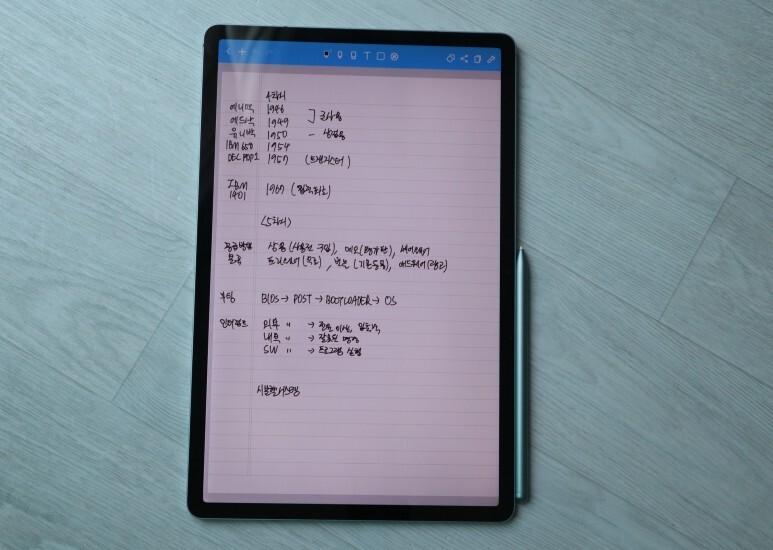 에니악 1946
에드삭 1949 ] 군사용
유니박 1950 - 상업용
IBM 650 1954
DEC PDP1 1957 (트랜지스터)
IBM 1401 1969 (집적회로)
<5회차>
공급방법 상용(사용전 구입), 데모(평가판), 셰어웨어
프리웨어(무료), 번들(기본등록), 애드웨어(광고)
부팅 BIOS → POST → BOOTLOADER → OS
인터럽트 외부 〃 → 전원 이상, 입출력
내부 〃 → 잘못된 명령
SW 〃 → 프로그램 실행
시분할시스템